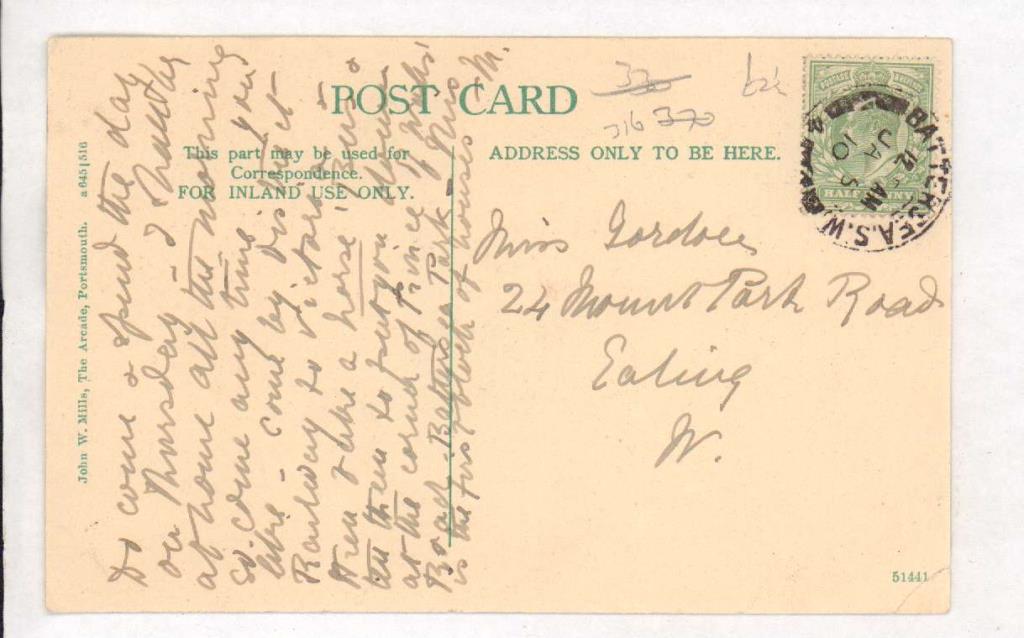 POST CARD
This part may be used for
Correspondence.
FOR INLAND USE ONLY.
ADDRESS ONLY TO BE HERE.
316 370
POSTAGE REVENUE
HALFPENNY
BATTERSEA. S.W.
12 AM
JA 5
10
Miss Gordon
24 Mount Park Road
Ealing
W.
Do come & spend the day
on Thursday - I shall be
at home all the morning
so come any time you
like - come by District
Railway to Victoria
then take a horse bus &
tell them to put you down
at the corner of Prince of Wales'
Road. Battersea Park - This
is the first block of houses
M.
John W. Mills, The Arcade, Portsmouth. a 645 | 516
51441